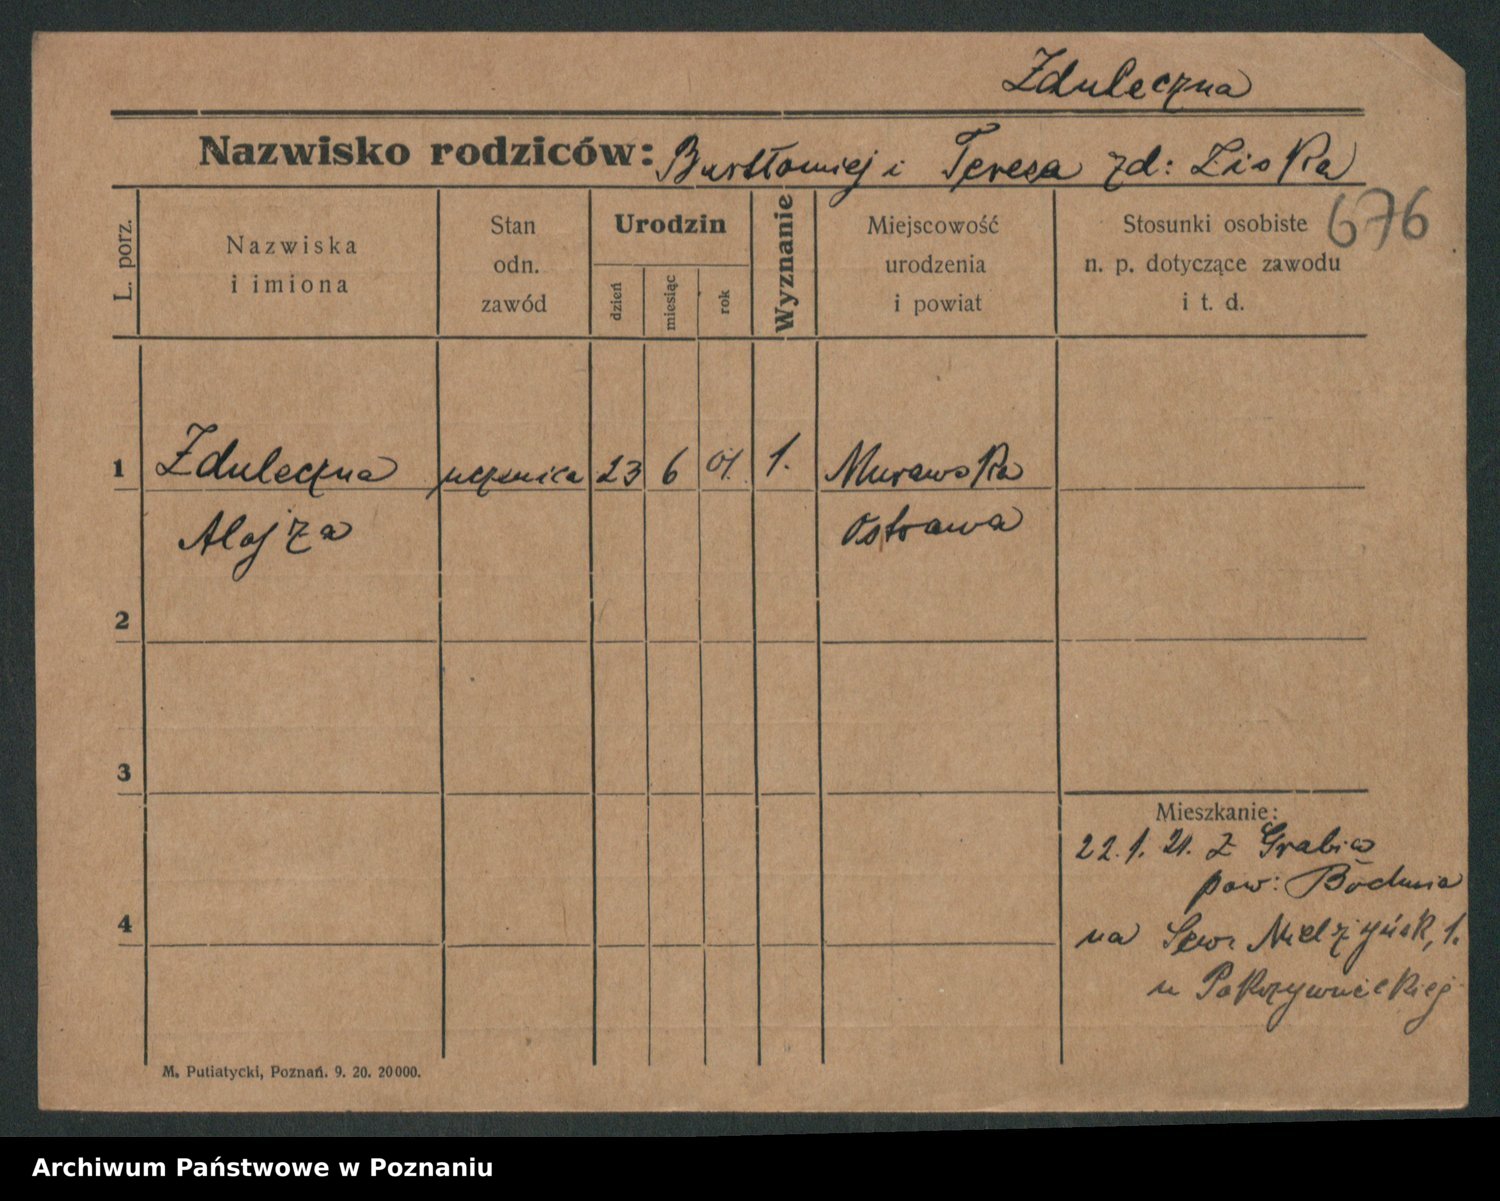 Zduleczna
Nazwisko rodziców: Bartłomiej i Teresa zd: Ziska
676
L. porz.
Nazwiska i imiona
Stan odn. zawód
Urodzin
dzień
miesiąc
rok
Wyznanie
Miejscowość urodzenia i powiat
Stosunki osobiste n. p. dotyczące zawodu i t. d.
1 Zduleczna uczenica 23 6 01. 1. Murawska
Alojza Ostrawa
2
3
Mieszkanie:
22.1.21. z Grabia
pow: Bochnia
4
na Sew. Mielżyńsk, 1.
u Pokrzywnickiej
M. Putiatycki, Poznań. 9. 20. 20000.
Archiwum Państwowe w Poznaniu